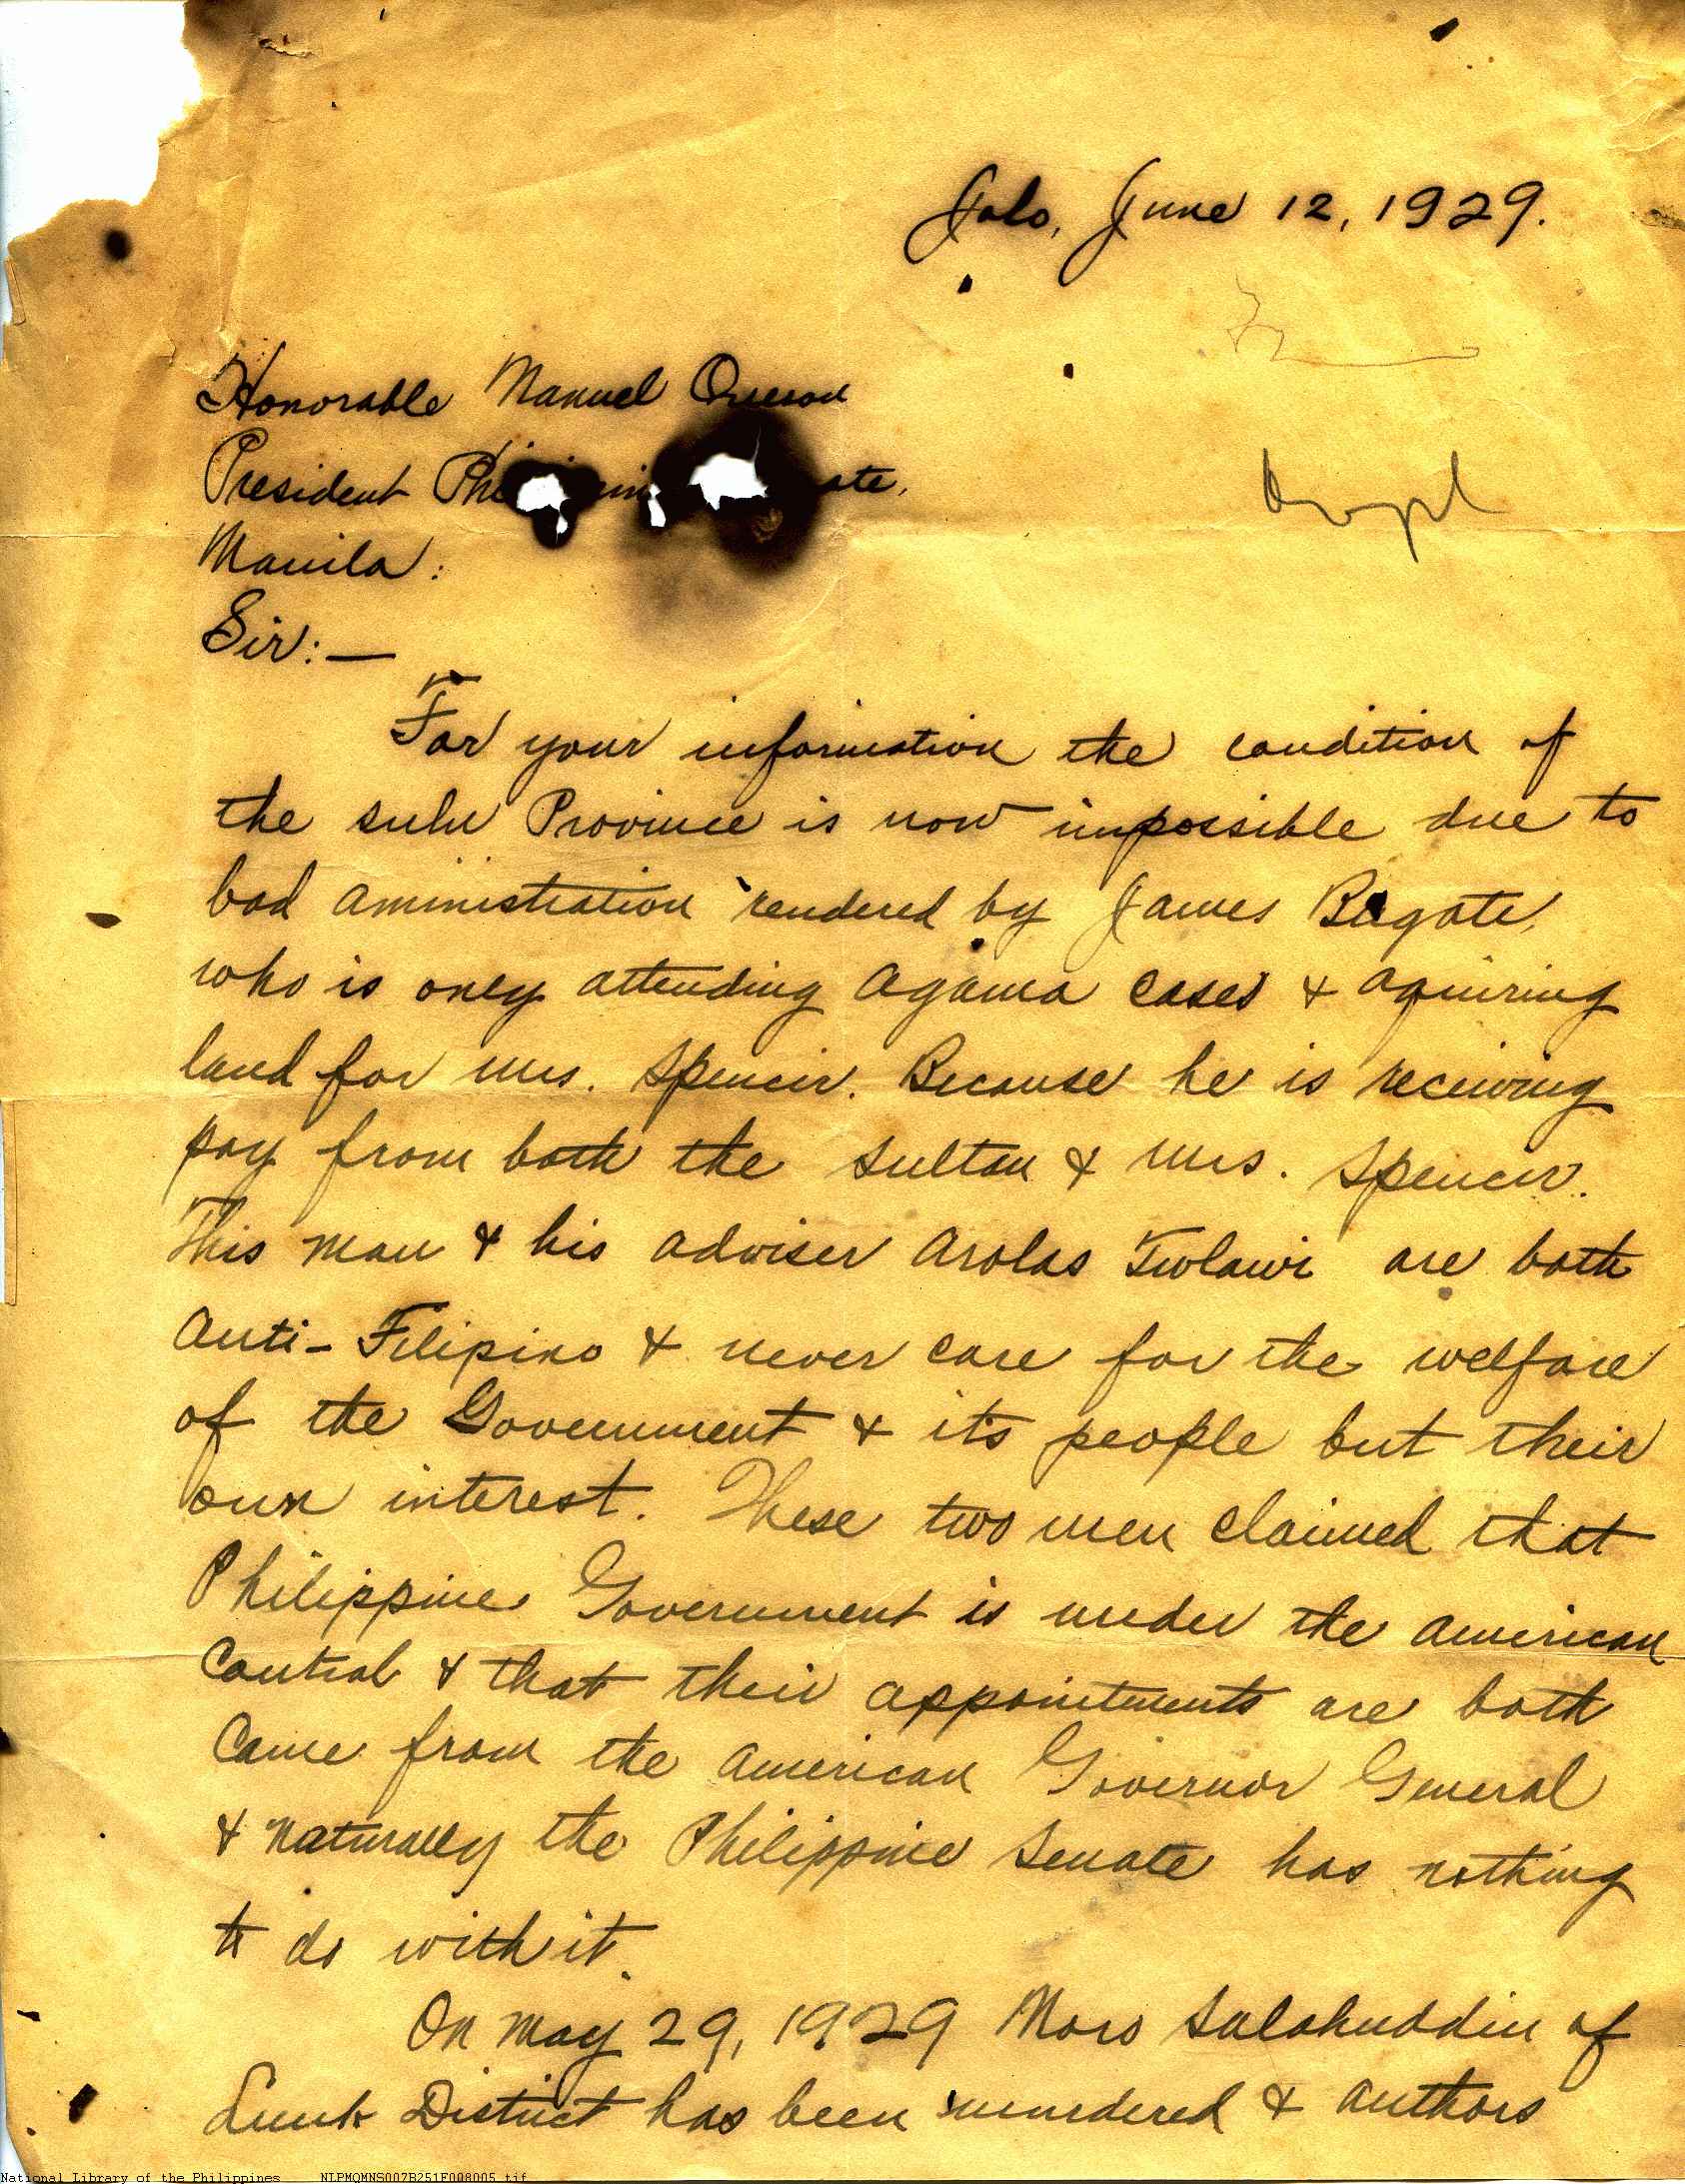 Jolo, June 12, 1929.
Honorable Manuel Queson
President
Manila:
Sir:—
For your information the condition of
the sulu Province is now impossible due to
bad aministration rendered by James
who is only attending agama cases & aquiring
land for mrs. Spencer. Because he is receiving
pay from both the sultan & mrs. Spencer.
This man & his adviser Arolas Tulawi are both
anti-Filipino & never care for the welfare
of the Government & its people but their
own interest. These two men claimed that
Philippine Government is under the american
Control & that their appointments are both
Came from the american Governor General
& naturally the Philippine Senate has nothing
to do with it.
On may 29, 1929 Moro Salahuddin of
Luuk District has been murdered & authors
National Library of the Philippines NLPMQMNS007B251F008005.tif